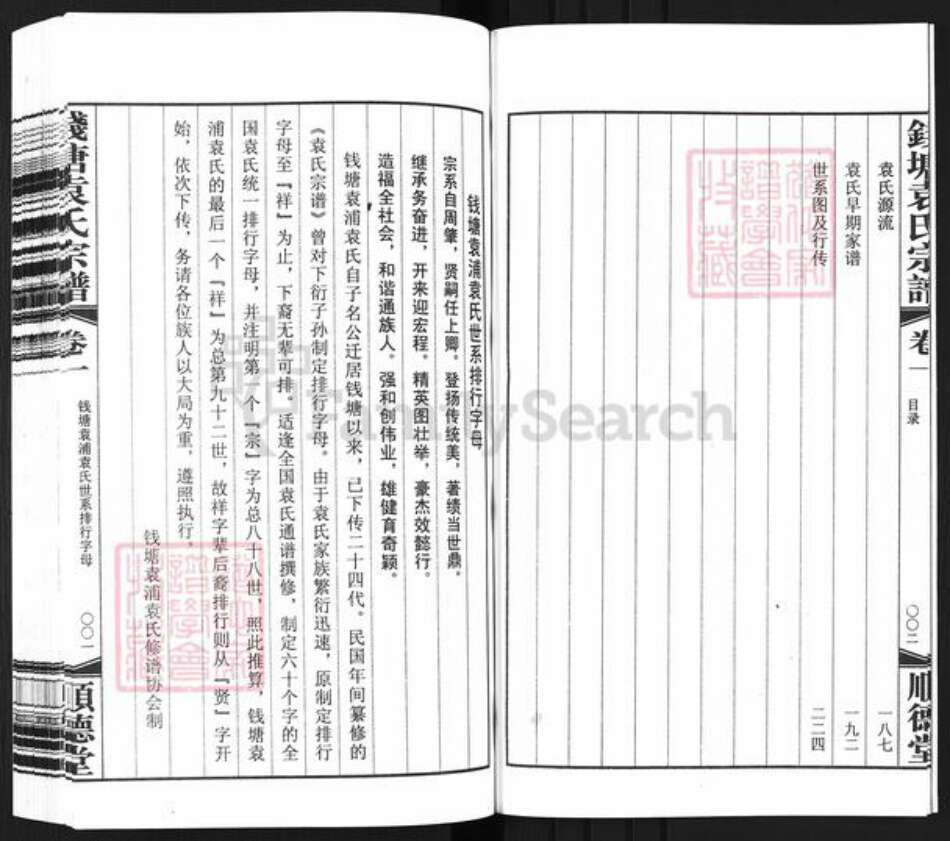 錢塘袁氏宗譜
卷一
目录
〇〇二
順德堂
袁氏源流
一八七
袁氏早期家谱
一九二
世系图及行传
二二四
钱塘袁浦袁氏世系排行字母
宗系自周肇，贤嗣任上卿。登扬传统美，著绩当世鼎。
继承务奋进，开来迎宏程。精英图壮举，豪杰效懿行。
造福全社会，和谐通族人。强和创伟业，雄健育奇颖。
钱塘袁浦袁氏自子名公迁居钱塘以来，已下传二十四代。民国年间纂修的
《袁氏宗谱》曾对下衍子孙制定排行字母。由于袁氏家族繁衍迅速，原制定排行
字母至『祥』为止，下裔无辈可排。适逢全国袁氏通谱撰修，制定六十个字的全
国袁氏统一排行字母，并注明第一个『宗』字为总八十八世，照此推算，钱塘袁
浦袁氏的最后一个『祥』为总第九十二世，故祥字辈后裔排行则从『贤』字开
始，依次下传，务请各位族人以大局为重，遵照执行。
钱塘袁浦袁氏修谱协会制
錢塘袁氏宗譜
卷一
钱塘袁浦袁氏世系排行字母
〇〇一
順德堂
FamilySearch